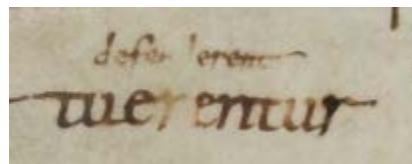 defen erent
tuerentur